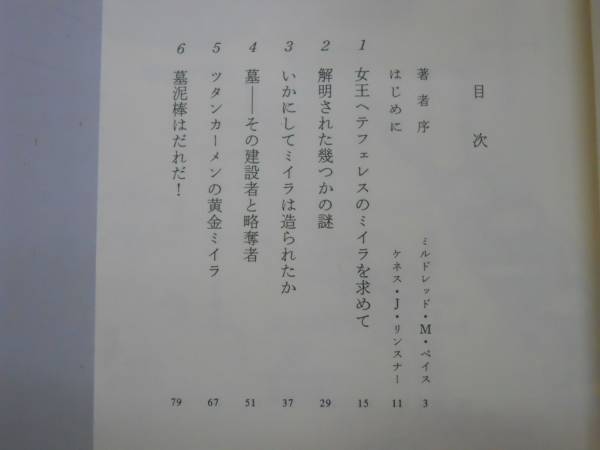 目次
著者序 ミルドレッド・M・ペイス 3
はじめに ケネス・J・リンスナー 11
1 女王ヘテフェレスのミイラを求めて 15
2 解明された幾つかの謎 29
3 いかにしてミイラは造られたか 37
4 墓――その建設者と略奪者 51
5 ツタンカーメンの黄金ミイラ 67
6 墓泥棒はだれだ! 79